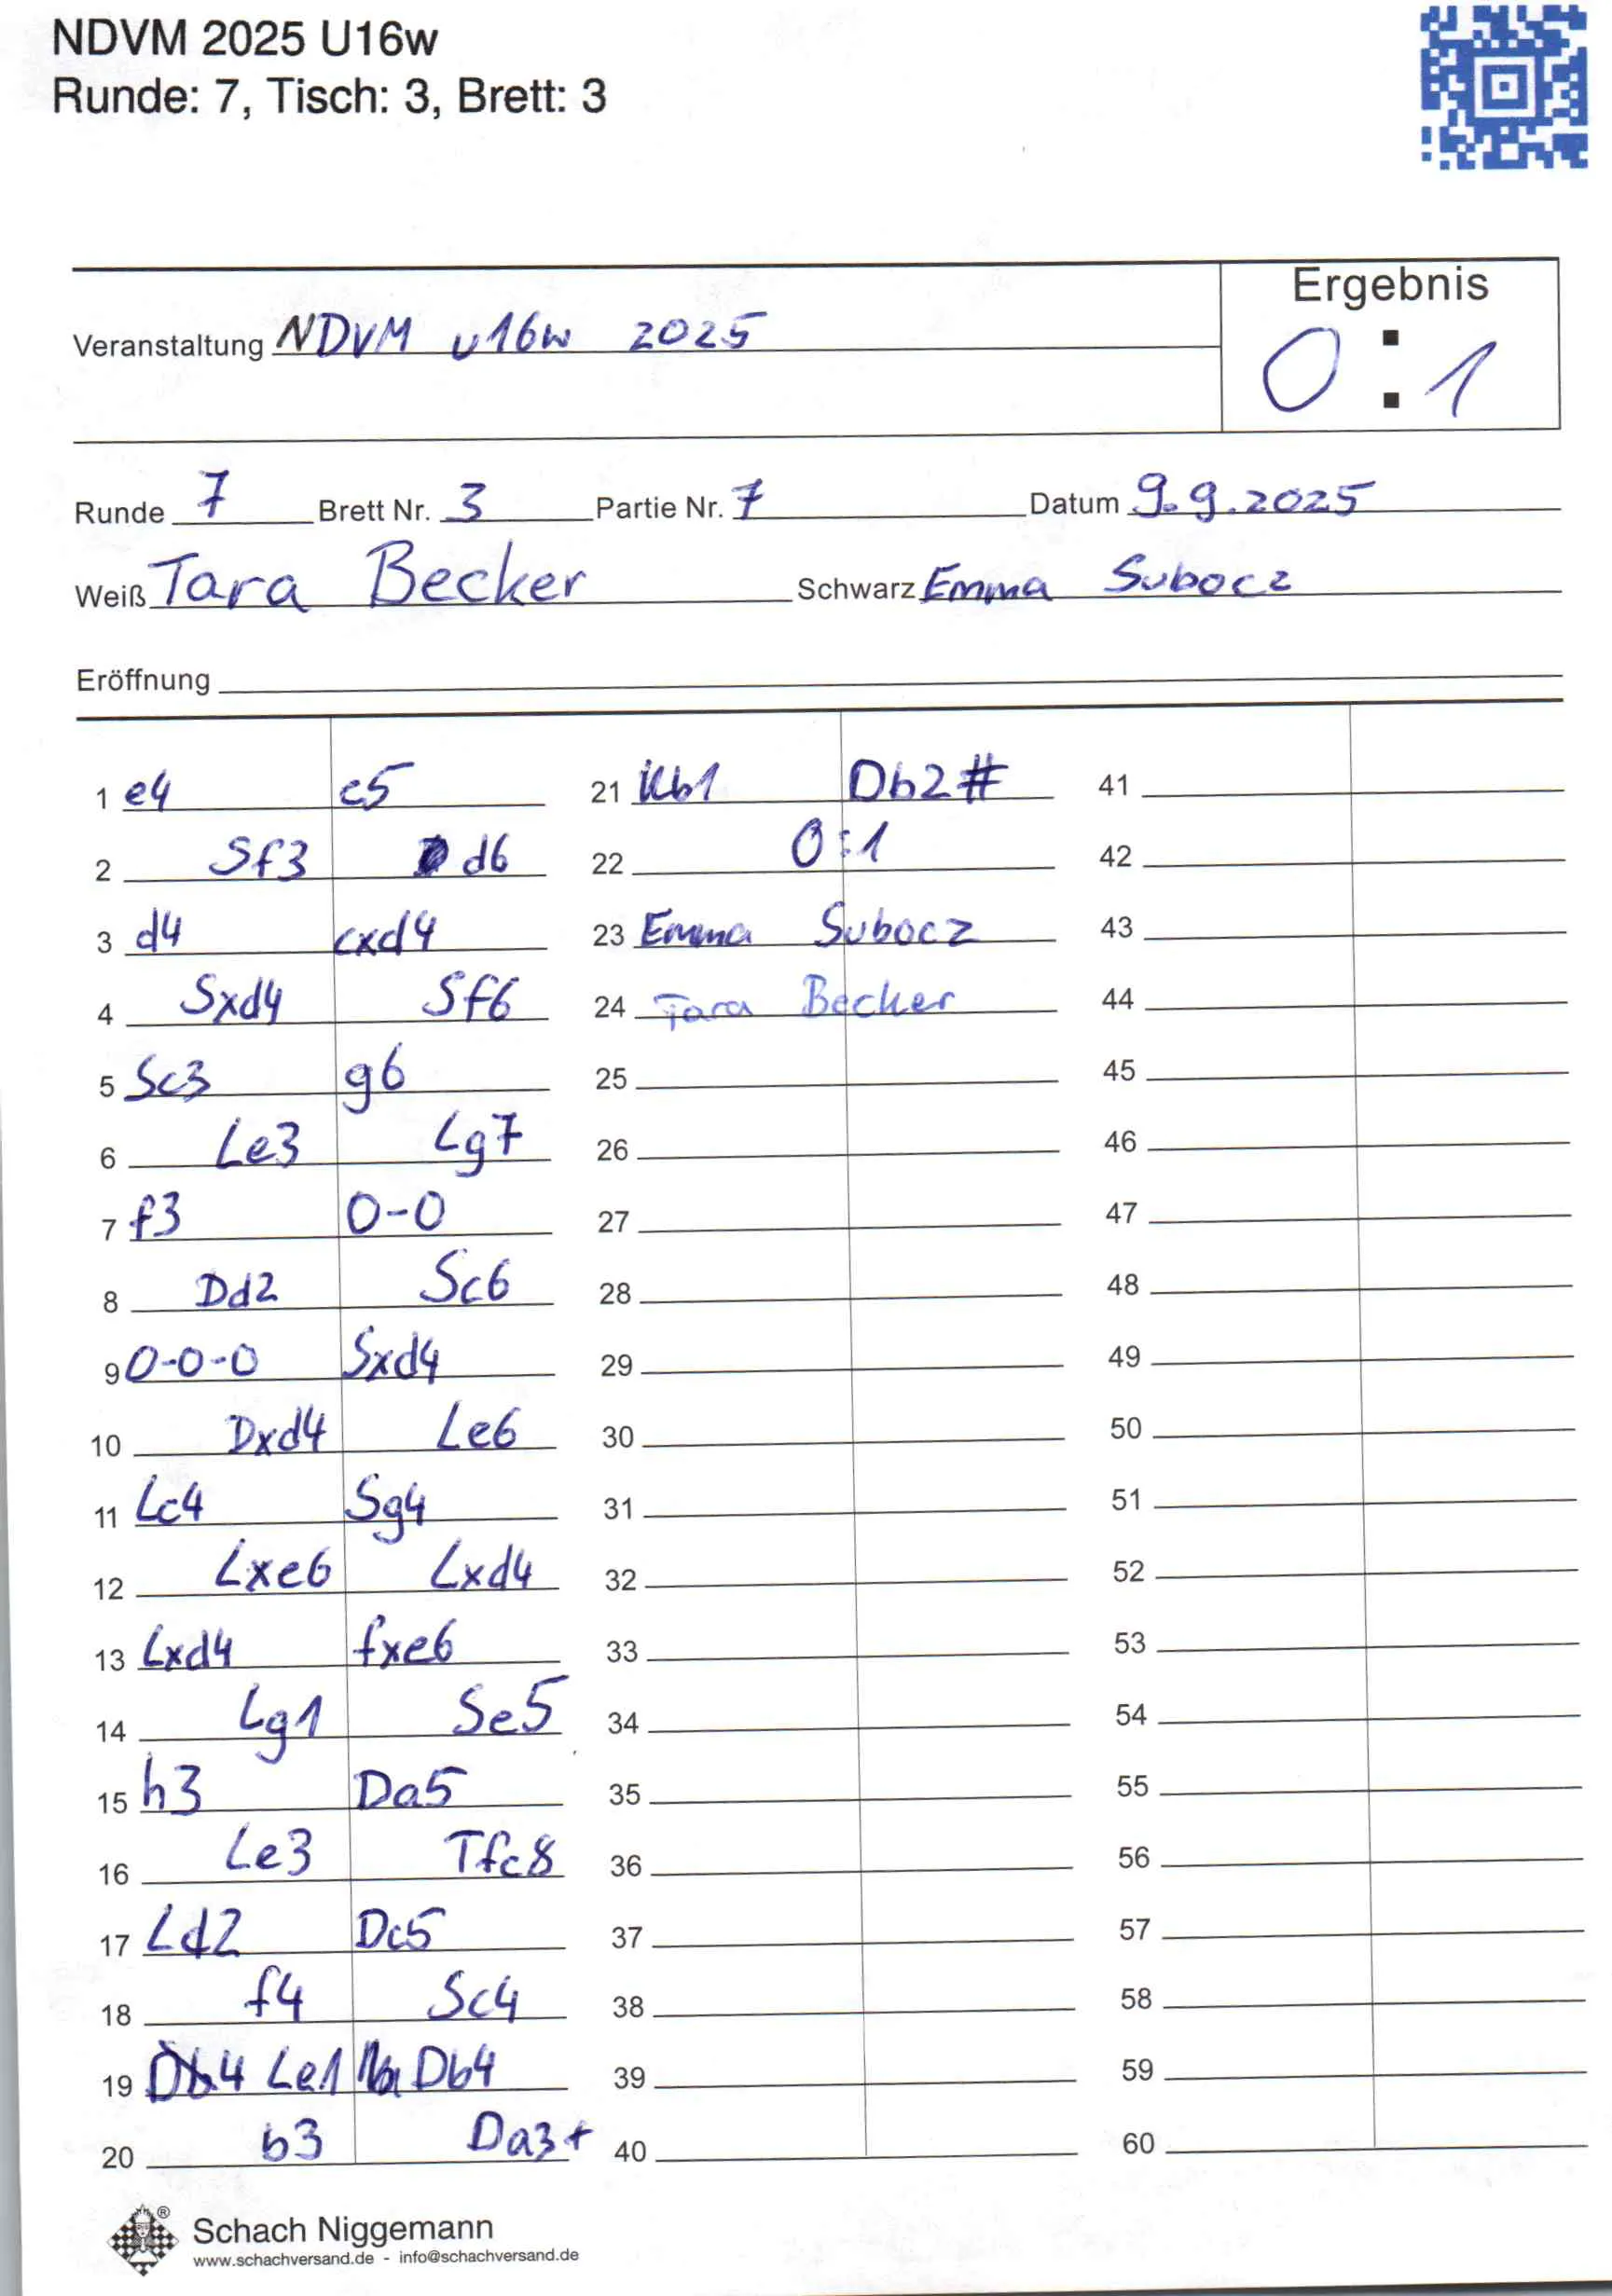 NDVM 2025 U16w
Runde: 7, Tisch: 3, Brett: 3
Ergebnis
Veranstaltung NDVM u16w 2025
0 : 1
Runde 7 Brett Nr. 3 Partie Nr. 7 Datum 9.9.2025
Weiß Tara Becker Schwarz Emma Subocz
Eröffnung
1 e4 c5 21 Kb1 Db2# 41
2 Sf3 d6 22 0:1 42
3 d4 cxd4 23 Emma Subocz 43
4 Sxd4 Sf6 24 Tara Becker 44
5 Sc3 g6 25 45
6 Le3 Lg7 26 46
7 f3 0-0 27 47
8 Dd2 Sc6 28 48
9 0-0-0 Sxd4 29 49
10 Dxd4 Le6 30 50
11 Lc4 Sg4 31 51
12 Lxe6 Lxd4 32 52
13 Lxd4 fxe6 33 53
14 Lg1 Se5 34 54
15 h3 Da5 35 55
16 Le3 Tfc8 36 56
17 Ld2 Dc5 37 57
18 f4 Sc4 38 58
19 Le1 Db4 39 59
20 b3 Da3+ 40 60
®
Schach Niggemann
www.schachversand.de - info@schachversand.de